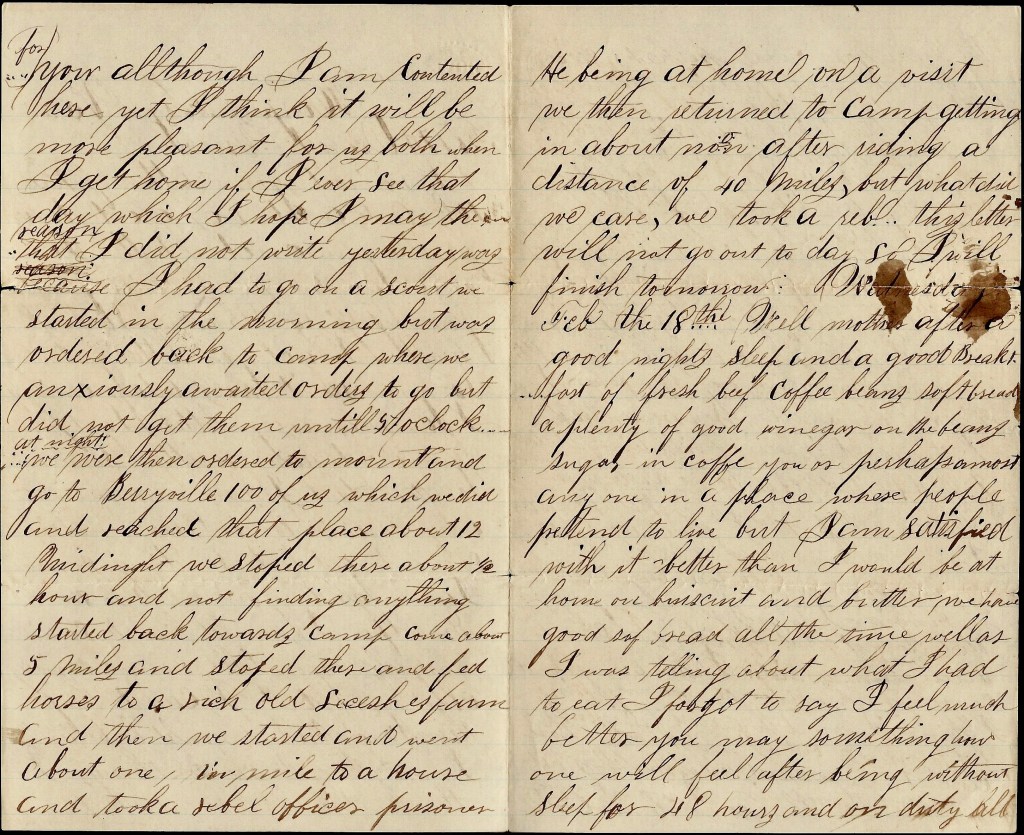 for
your allthough I am Contented
here yet I think it will be
more pleasant for us both when
I get home if I ever see that
day which I hope I may the
reason
that I did not write yesterday was
reason
because I had to go on a scout we
started in the morning but was
ordered back to camp where we
anxiously awaited orders to go but
did not get them untill 5 oclock
at night
we were then ordered to mount and
go to Berryville 100 of us which we did
and reached that place about 12
Miidinght we stoped there about 1/2
hour and not finding anything
started back towards camp come about
5 Miles and stoped there and fed
horses to a rich old Seceshes farm
and then we started and went
about one mile to a house
and took a rebel officer prisoner
He being at home on a visit
we then returned to Camp getting
in about noon after riding a
distance of 40 Miles, but what did
we care, we took a reb.. this letter
will not go out to day so I will
finish tomorrow: Wednesday
Feb the 18th Well mother after a
good nights sleep and a good Break
fast of fresh beef Coffee beans soft bread
a plenty of good vinegar on the beans
sugar in coffe you or perhaps amost
any one in a place where people
pretend to live but I am satisfied
with it better than I would be at
home on buiscint and butter we have
good sof bread all the time well as
I was telling about what I had
to eat I forgot to say I feel much
better you may something how
one will feel after being without
sleep for 48 hours and on duty all